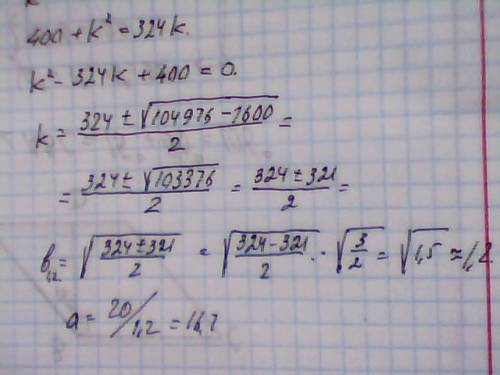 400 + k² = 324k.
k² - 324k + 400 = 0.
k = (324 ± √(104976 - 1600))/2 =
= (324 ± √103376)/2 = (324 ± 321)/2 =
b₁,₂ = √((324 ± 321)/2) = √((324 - 321)/2) · √(3/2) = √1,5 ≈ 1,2.
a = 20/1,2 = 16,7